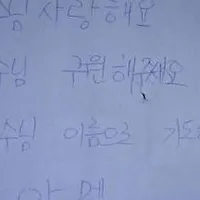 님 사랑해요
수님 구원해주세요
수님 이름으로 기도
아멘